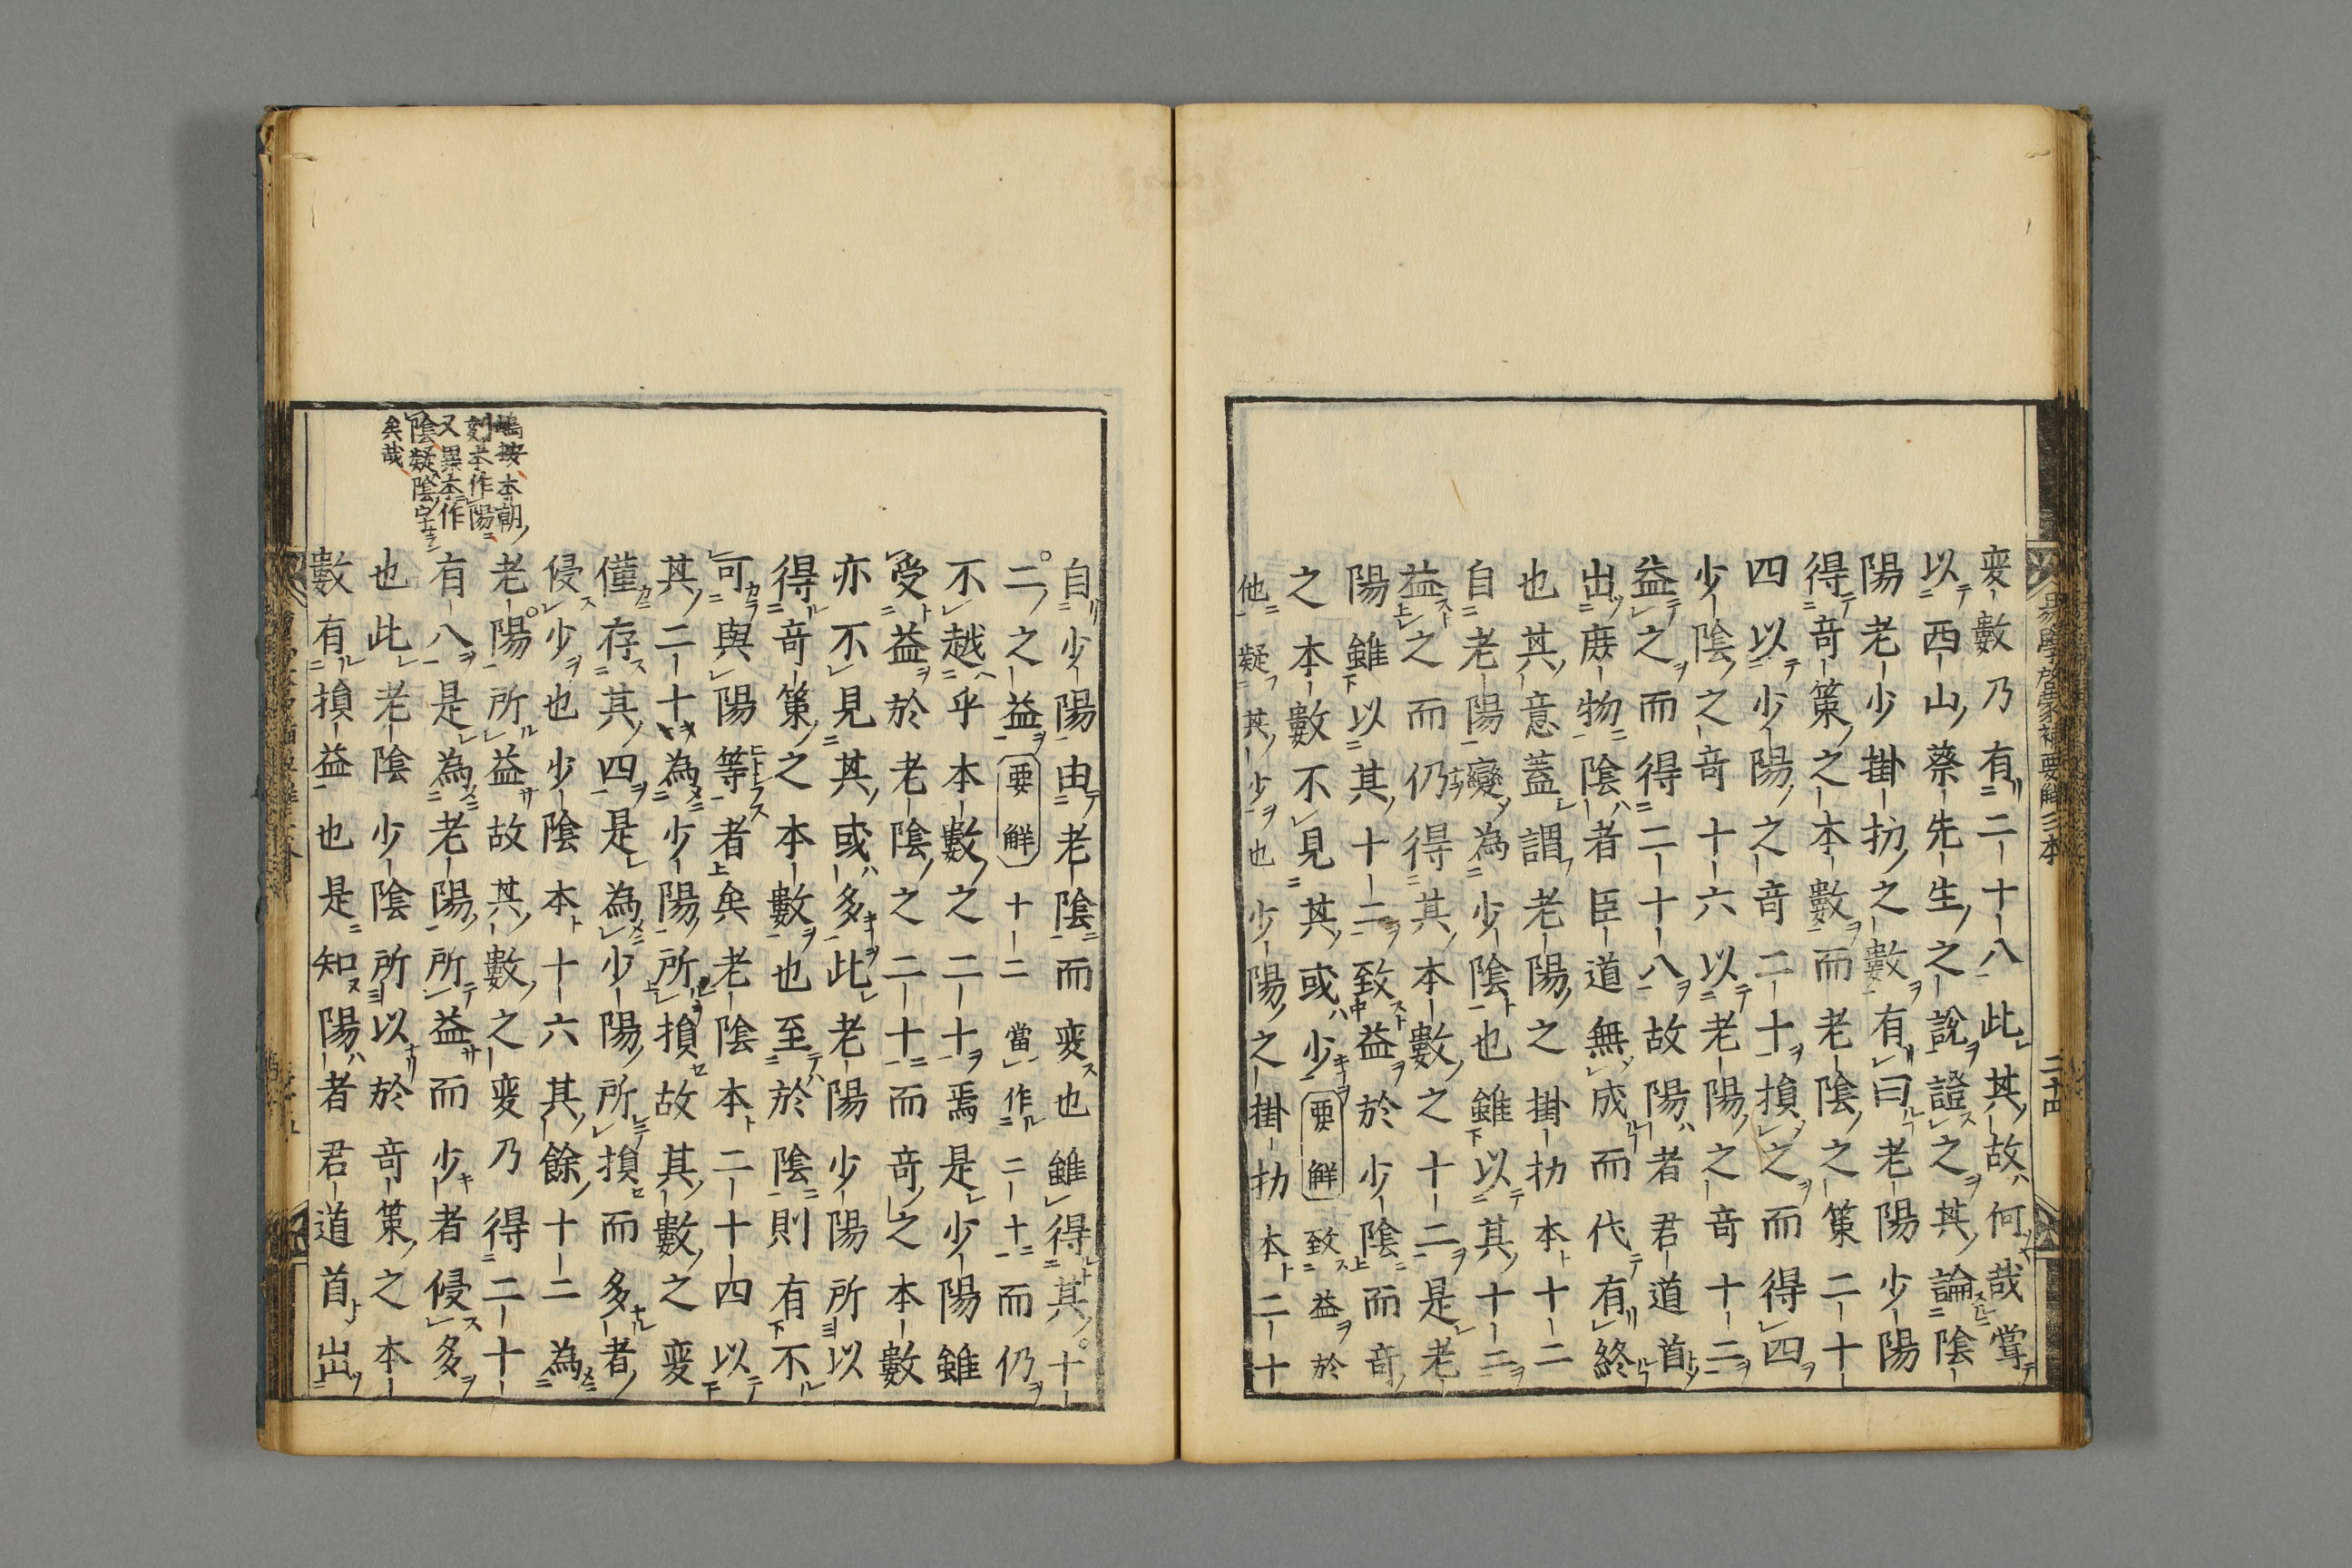 変數乃有二十八此其故何哉嘗
以西山蔡先生之說證之其論陰
陽老少掛扐之數有曰老陽少陽
得竒策之本數而老陰之策二十
四以少陽之竒二十損之而得四
少陰之竒十六以老陽之竒十二
益之而得二十八故陽者君道首
出庶物陰者臣道無成而代有終
也其意蓋謂老陽之掛扐本十二
自老陽變為少陰也雖以其十二
益之而仍得其本數之十二是老
陽雖以其十二致益於少陰而竒
之本數不見其或少要解致益於
他疑其少也少陽之掛扐本二十
自少陽由老陰而変也雖得其十
二之益要解十二當作二十而仍
不越乎本數之二十焉是少陽雖
受益於老陰之二十而竒之本數
亦不見其或多此老陽少陽所以
得竒策之本數也至於陰則有不
可與陽等者矣老陰本二十四以
其二十為少陽所損故其數之変
僅存其四是為少陽所損而多者
侵少也少陰本十六其餘十二為
老陽所益故其數之変乃得二十
有八是為老陽所益而少者侵多
也此老陰少陰所以於竒策之本
數有損益也是知陽者君道首出
按本朝
刻本作陽
又異本作
陰疑陰字
矣哉
易學啓蒙補要解三本
二十四